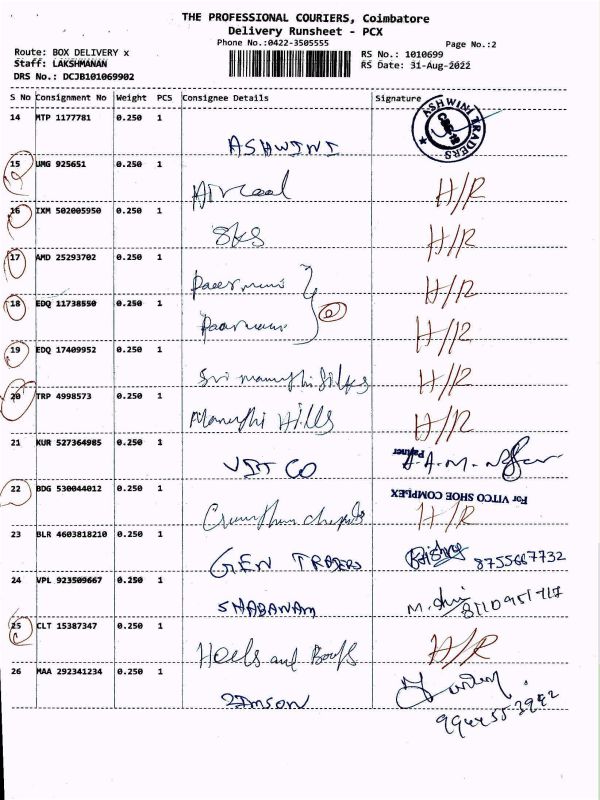 THE PROFESSIONAL COURIERS, Coimbatore
Delivery Runsheet - PCX
Phone No.:0422-3505555
Page No.:2
Route: BOX DELIVERY x
RS No.: 1010699
Staff: LAKSHMANAN
RS Date: 31-Aug-2022
DRS No.: DCJB101069902
S No Consignment No Weight PCS Consignee Details Signature
14 MTP 1177781 0.250 1
ASHWINI
ASHWINI TRADERS
15 UMG 925651 0.250 1
Aircool H/R
16 IXM 502005950 0.250 1
SKS H/R
17 AMD 25293702 0.250 1
H/R
18 EDQ 11738550 0.250 1
2
H/R
19 EDQ 17409952 0.250 1
Sri H/R
20 TRP 4998573 0.250 1
Hills H/R
21 KUR 527364985 0.250 1
VITCO
Partner
22 BDG 530044012 0.250 1
For VITCO SHOE COMPLEX
H/R
23 BLR 4603818210 0.250 1
GEN TRADERS 8755667732
24 VPL 923509667 0.250 1
SHABANAM
25 CLT 15387347 0.250 1
Heels and Boots H/R
26 MAA 292341234 0.250 1
ZAMSON